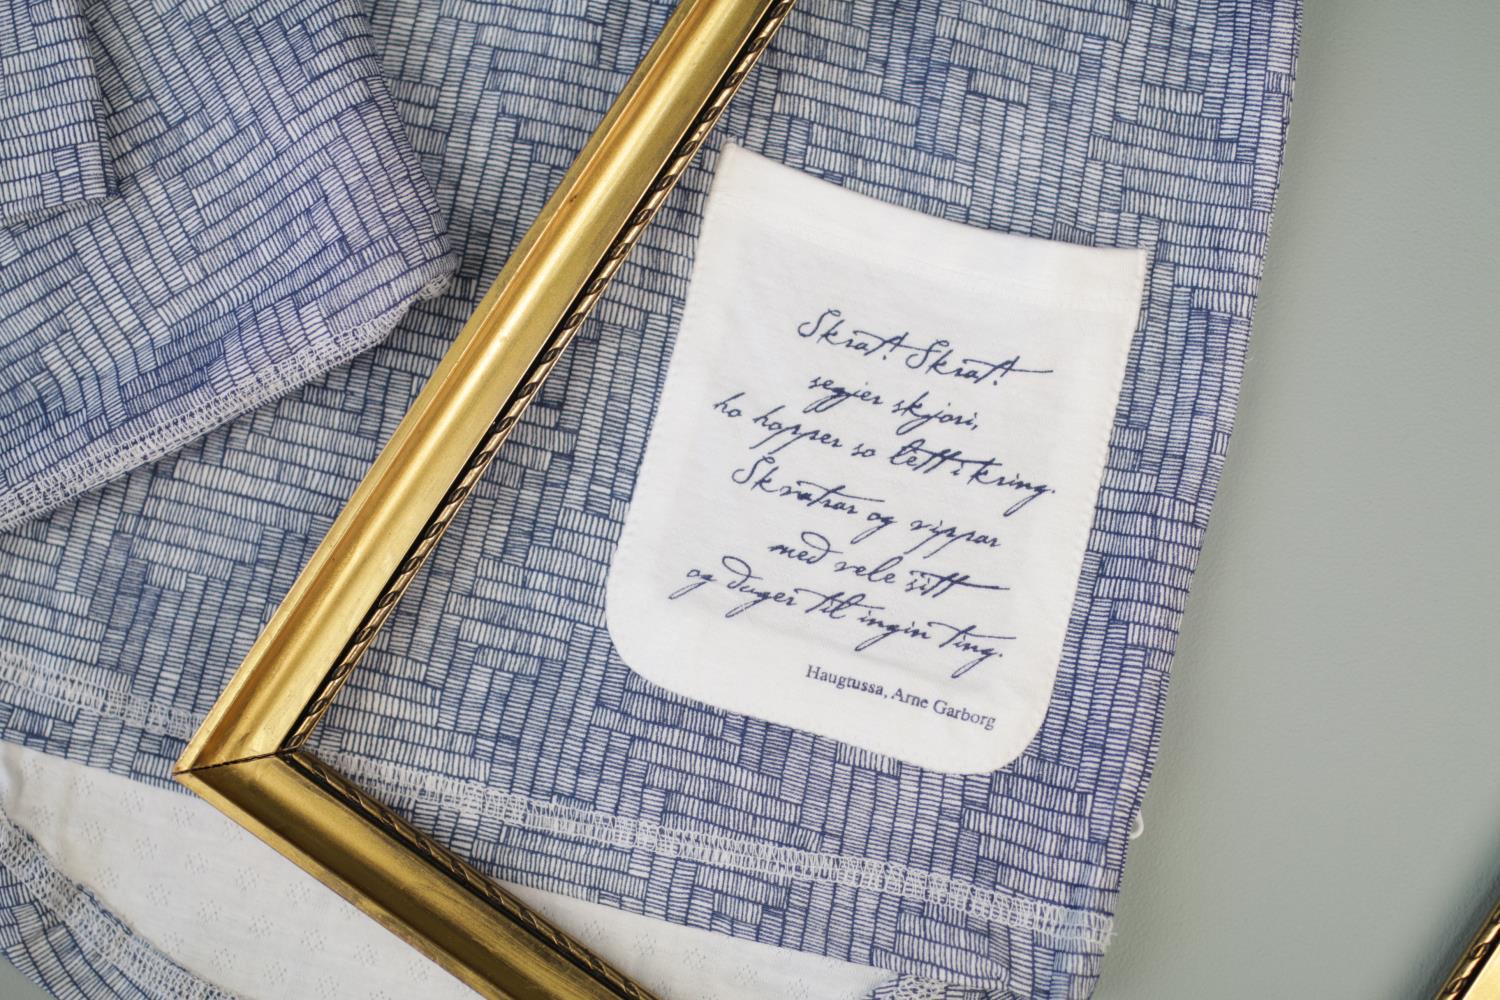 Skrat! Skrat!
segjer skjori,
ho hopper so lett i kring.
Skratrar og rippar
med vele sitt
og duger til ingin ting.
Haugtussa, Arne Garborg